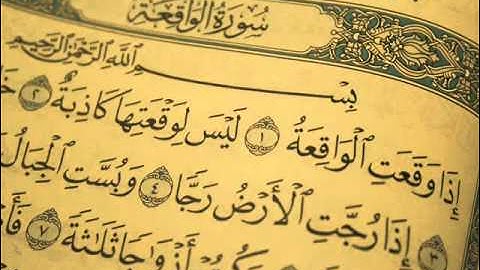 سُورَةُ الْوَاقِعَةِ
بِسْمِ اللَّهِ الرَّحْمَٰنِ الرَّحِيمِ
إِذَا وَقَعَتِ الْوَاقِعَةُ ١ لَيْسَ لِوَقْعَتِهَا كَاذِبَةٌ ٢
٣ إِذَا رُجَّتِ الْأَرْضُ رَجًّا ٤ وَبُسَّتِ الْجِبَالُ
أَزْوَاجًا ثَلَاثَةً ٧